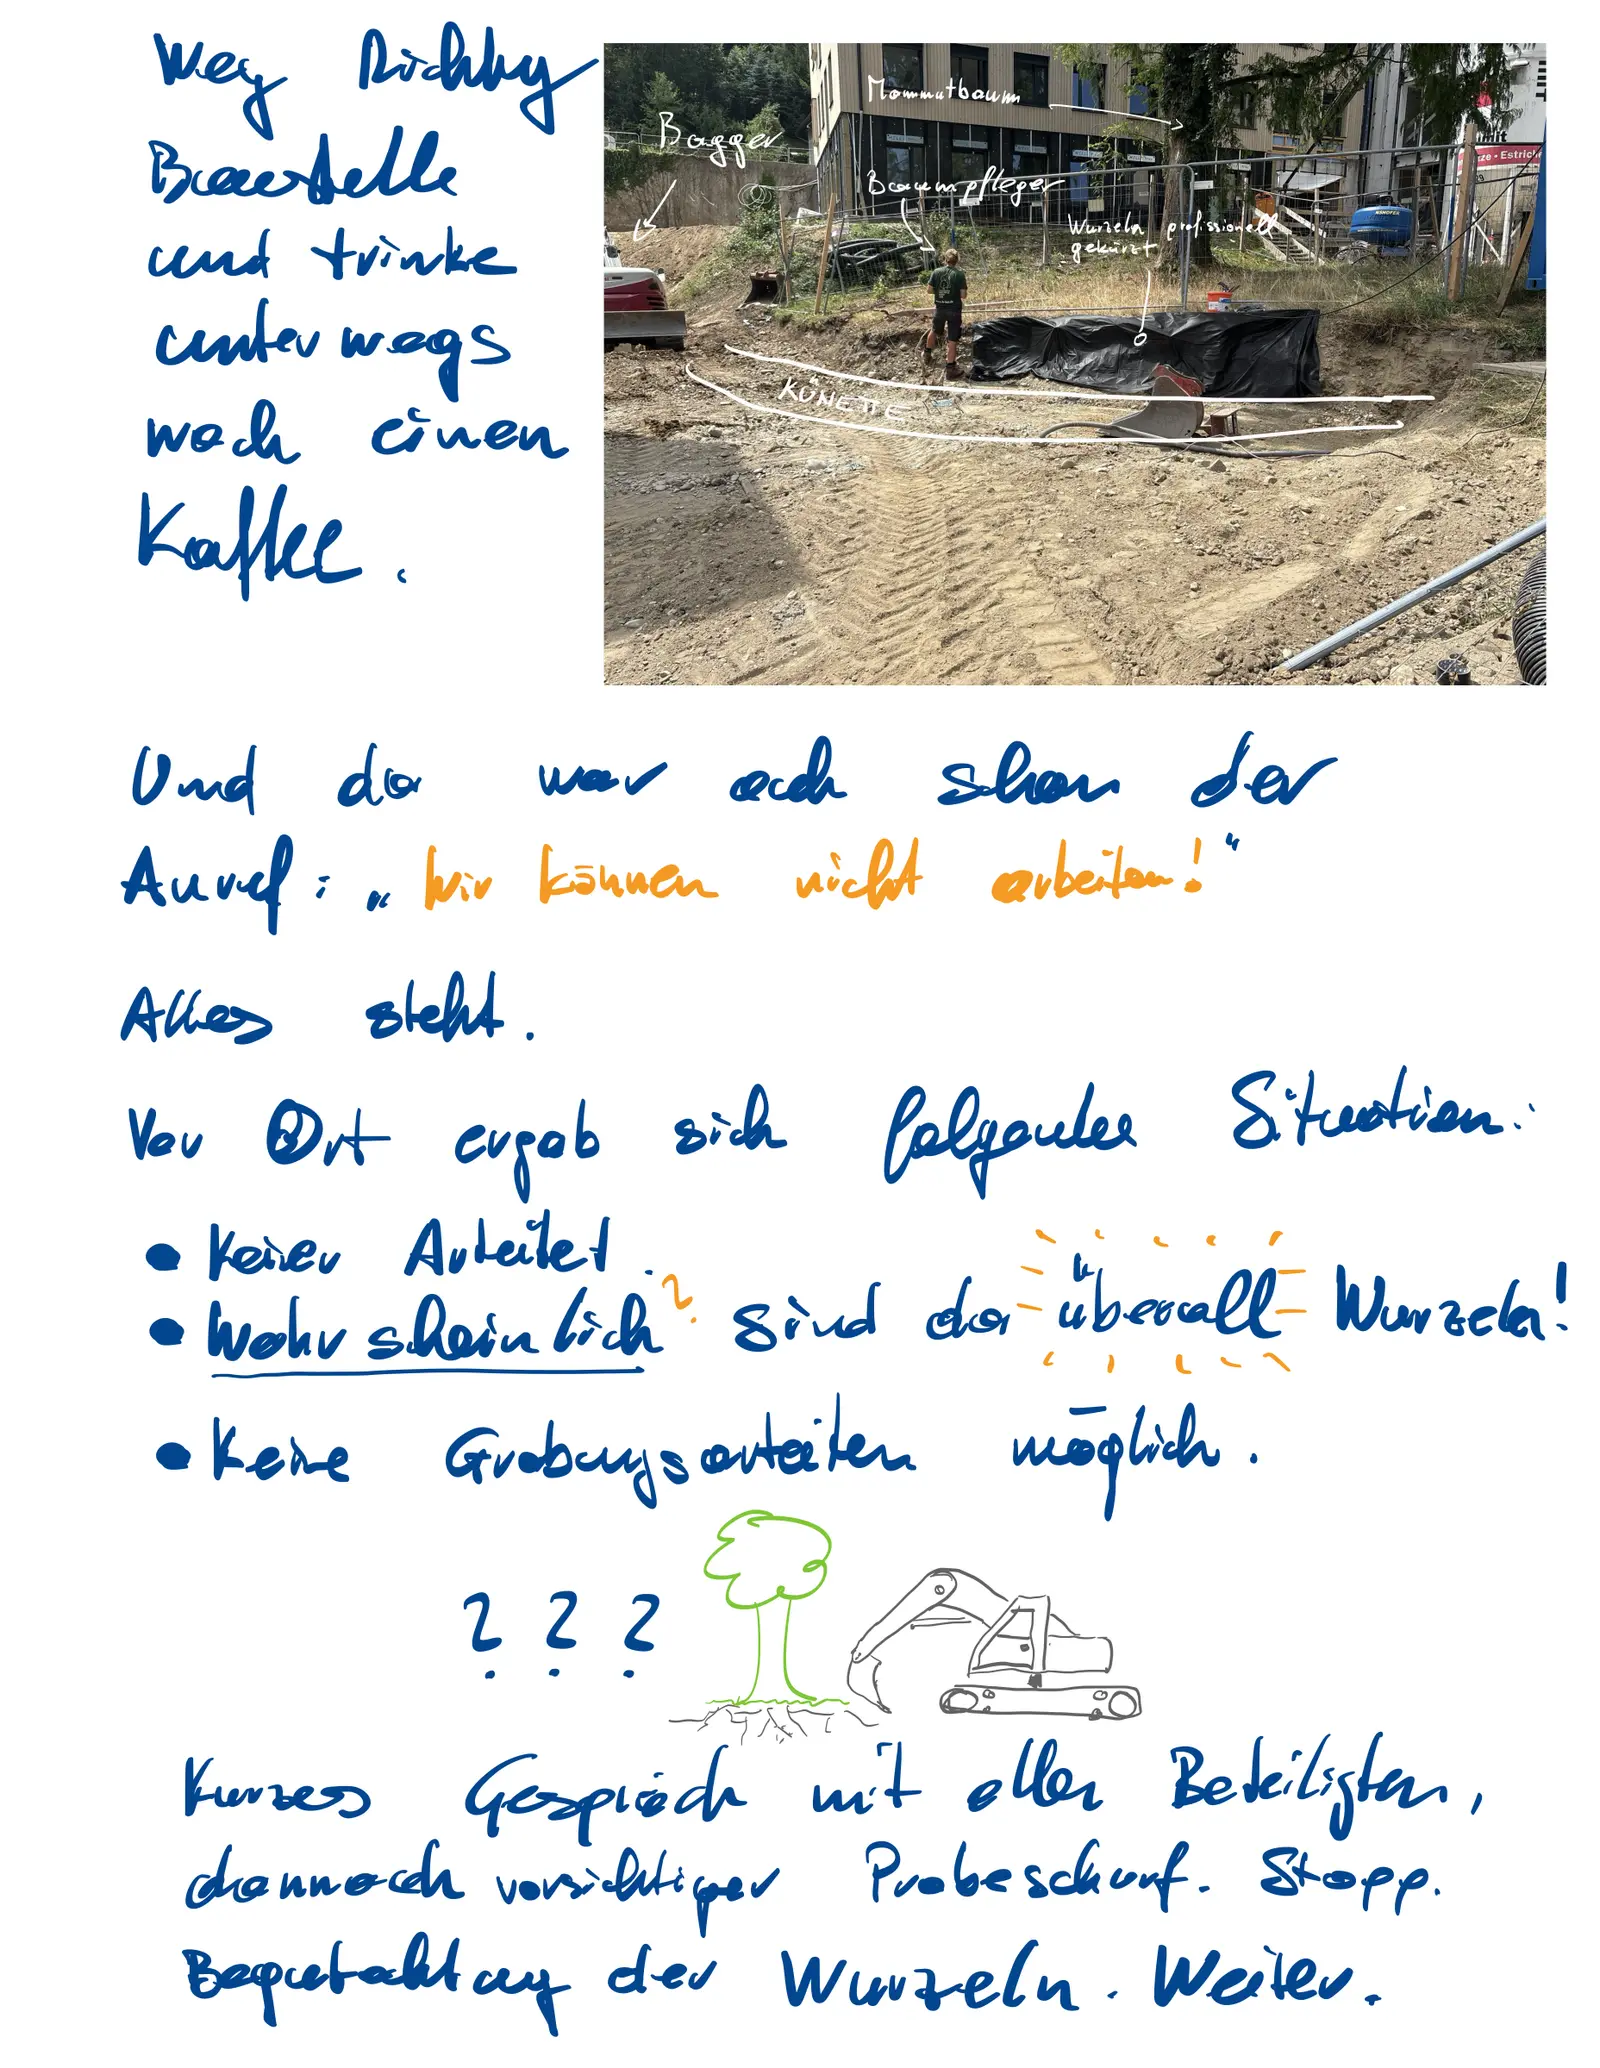 Weg Richtung
Baustelle
und trinke
unterwegs
noch einen
Kaffee.
Mammutbaum
Bagger
Baumpfleger
Wurzeln profissionell
gekürzt
KÜNETTE
Und da war auch schon der
Anruf: „Wir können nicht arbeiten!“
Alles steht.
Vor Ort ergab sich folgende Situation:
• Keiner Arbeitet.
• Wahrscheinlich? sind da überall Wurzeln!
• Keine Grabungsarbeiten möglich.
? ? ?
Kurzes Gespräch mit allen Beteiligten,
dannnach vorsichtiger Probeschurf. Stopp.
Begutachtung der Wurzeln. Weiter.